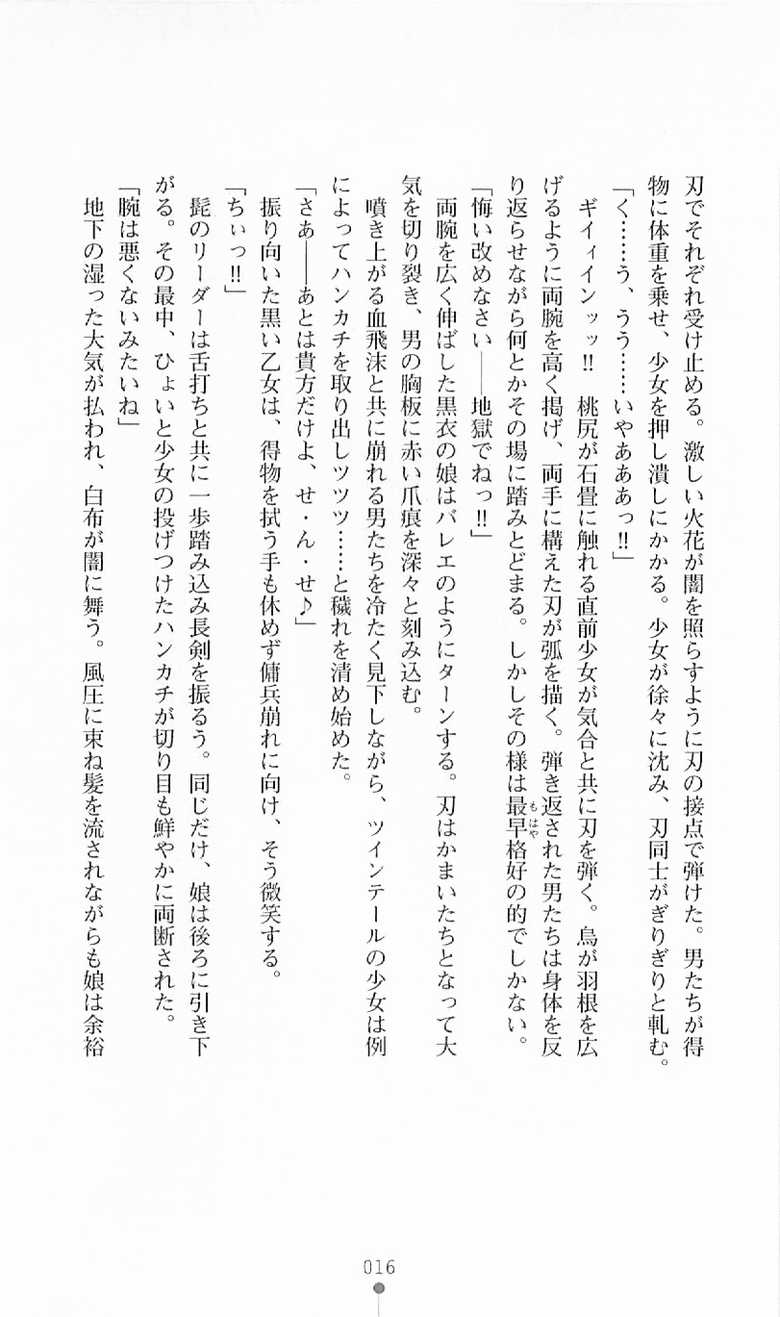 刃でそれぞれ受け止める。激しい火花が闇を照らすように刃の接点で弾けた。男たちが得
物に体重を乗せ、少女を押し潰しにかかる。少女が徐々に沈み、刃同士がぎりぎりと軋む。
「く……う、うう……いやあああっ‼」
ギイィインッッ‼　桃尻が石畳に触れる直前少女が気合と共に刃を弾く。烏が羽根を広
げるように両腕を高く掲げ、両手に構えた刃が弧を描く。弾き返された男たちは身体を反
り返らせながら何とかその場に踏みとどまる。しかしその様は最早格好の的でしかない。
もはや
「悔い改めなさい――地獄でねっ‼」
両腕を広く伸ばした黒衣の娘はバレエのようにターンする。刃はかまいたちとなって大
気を切り裂き、男の胸板に赤い爪痕を深々と刻み込む。
噴き上がる血飛沫と共に崩れる男たちを冷たく見下しながら、ツインテールの少女は例
によってハンカチを取り出しツツツ……と穢れを清め始めた。
「さあ――あとは貴方だけよ、せ・ん・せ♪」
振り向いた黒い乙女は、得物を拭う手も休めず傭兵崩れに向け、そう微笑する。
「ちぃっ‼」
髭のリーダーは舌打ちと共に一歩踏み込み長剣を振るう。同じだけ、娘は後ろに引き下
がる。その最中、ひょいと少女の投げつけたハンカチが切り目も鮮やかに両断された。
「腕は悪くないみたいね」
地下の湿った大気が払われ、白布が闇に舞う。風圧に束ね髪を流されながらも娘は余裕
016